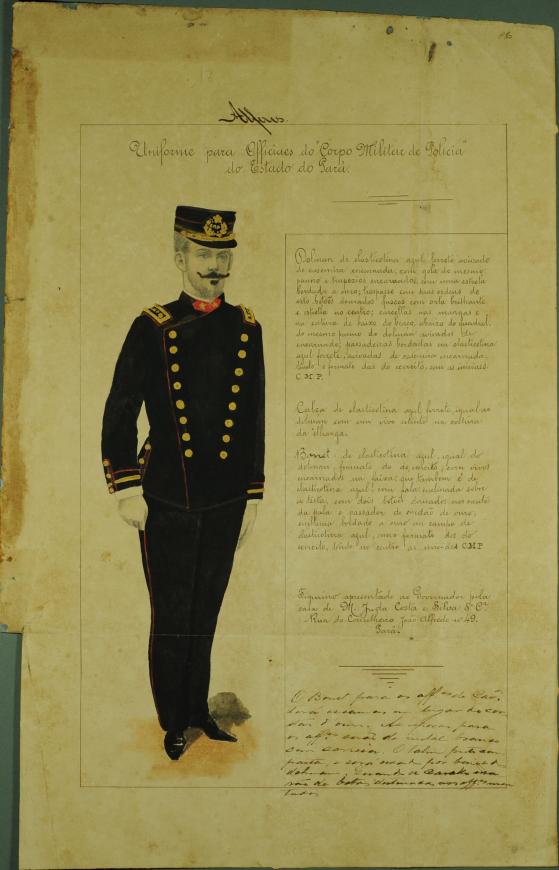 Alferes.
Uniforme para Officiaes do "Corpo Militar de Policia"
do Estado do Pará.
Dolman de elasticotina azul ferrete avivado
de casemira encarnada, com gola do mesmo
panno e trapezios encarnados, com uma estrela
bordada a ouro; trespasse com duas ordens de
oito botões dourados fuscos com orla brilhante
e estrela no centro; carcellas nas mangas e
na costura de baixo do abaixo do quadril,
do mesmo panno do dolman avivados de
encarnado; passadeiras bordadas em elasticotina
azul ferrete, avivadas de casemira encarnada,
tendo o formato das do exercito, com as iniciaes
C.M.P.
Calça de elasticotina azul ferrete, igual ao
dolman com um vivo na costura
da ilharga.
Bonet de elasticotina azul, igual do
dolman, formato do do exercito, com vivos
encarnados na faixa; que tambem é de
elasticotina azul, com pala inclinada sobre
a testa, com dois botões dourados nos cantos
da pala e passador de cordão de ouro,
emblema bordado a ouro em campo de
elasticotina azul, no formato dos do
exercito, tendo no centro as iniciaes C.M.P.
Figurino apresentado ao Governador pela
casa de M. J. da Costa e Silva & Cª.
Rua do Conselheiro João Alfredo nº 49.
Pará.
O Bonet para os de
em lugar de cor-
dão d'ouro. para
os serão de metal branco
com correia. O
e será usado por baixo do
dolman.